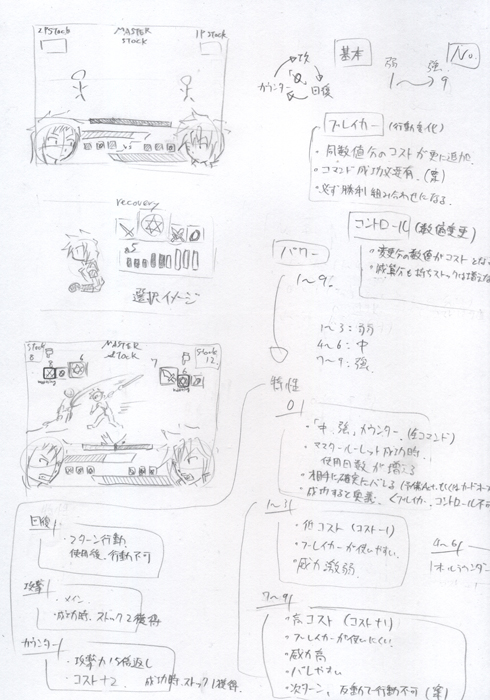 2P Stock
MASTER
stock
1P Stock
VS
recovery
選択イメージ
stock
8
MASTER
stock
7
6
stock
12
基本
攻
カウンター
回復
弱
強
1〜9
No.
ブレイカー (行動変化)
・同数値分のコストが更に追加
・コマンド成功必要有. (案)
・必ず勝利組み合わせになる
コントロール (数値変更)
・変更分の数値がコストとな
・減算分も持ちストックは増えな
パワー
1〜9.
1〜3: 弱
4〜6: 中
7〜9: 強.
特性
0
・「中、強」カウンター. (全コマンド)
・マスタールーレット成功時..
使用回数が増える
・相手に確実にバレる
・成功すると奥義
ブレイカー、コントロール不
1〜3
・低コスト (コスト-1)
・ブレイカーが使いやすい.
・威力激弱.
4〜6
オールラウンダー
7〜9
・高コスト (コスト+1)
・ブレイカーが使いにくい.
・威力高
・バレやすい
・次ターン、反動で行動不可 (案)
回復
・2ターン行動
使用後、行動不可
攻撃
・メイン.
・成功時、ストック2獲得
カウンター
・攻撃力1.5倍返し
・コスト+2
成功時、ストック1獲得.